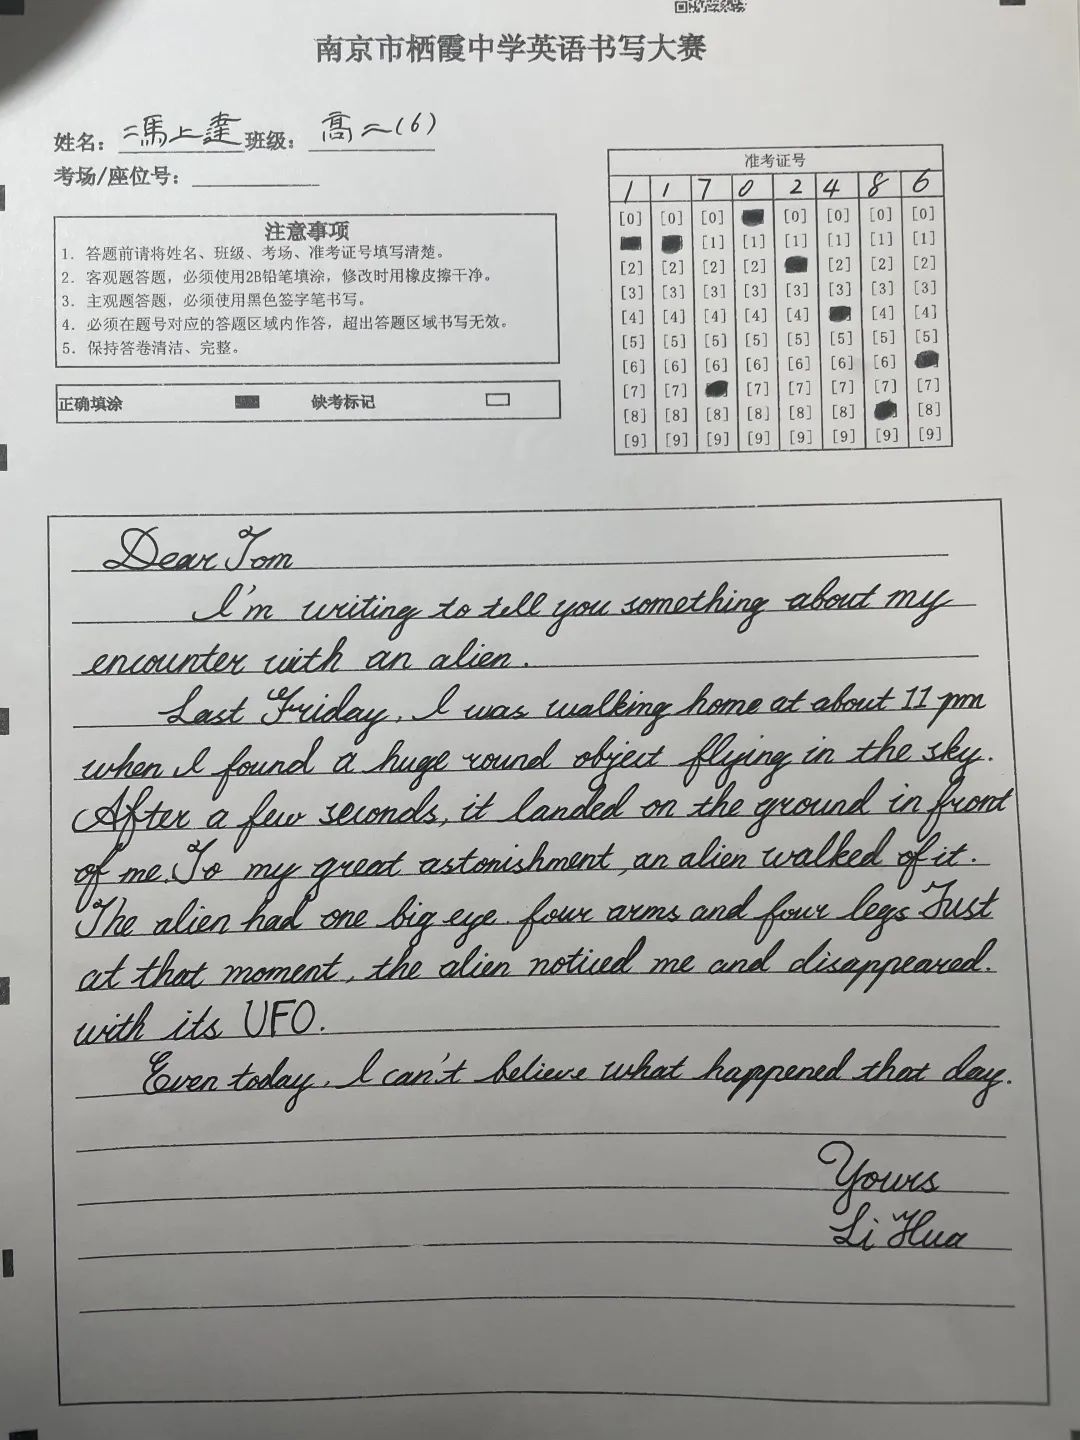 南京市栖霞中学英语书写大赛
姓名: 馮上達 班级: 高二(6)
考场/座位号:
注意事项
1. 答题前请将姓名、班级、考场、准考证号填写清楚。
2. 客观题答题, 必须使用2B铅笔填涂, 修改时用橡皮擦干净。
3. 主观题答题, 必须使用黑色签字笔书写。
4. 必须在题号对应的答题区域内作答, 超出答题区域书写无效。
5. 保持答卷清洁、完整。
正确填涂 缺考标记
准考证号
1 1 7 0 2 4 8 6
[0] [0] [0] [0] [0] [0] [0]
[1] [1] [1] [1] [1] [1]
[2] [2] [2] [2] [2] [2] [2]
[3] [3] [3] [3] [3] [3] [3] [3]
[4] [4] [4] [4] [4] [4] [4]
[5] [5] [5] [5] [5] [5] [5] [5]
[6] [6] [6] [6] [6] [6] [6]
[7] [7] [7] [7] [7] [7] [7]
[8] [8] [8] [8] [8] [8] [8]
[9] [9] [9] [9] [9] [9] [9] [9]
Dear Tom
I'm writing to tell you something about my
encounter with an alien.
Last Friday, I was walking home at about 11 pm
when I found a huge round object flying in the sky.
After a few seconds, it landed on the ground in front
of me. To my great astonishment, an alien walked of it.
The alien had one big eye. four arms and four legs Just
at that moment, the alien noticed me and disappeared.
with its UFO.
Even today, I can't believe what happened that day.
Yours
Li Hua